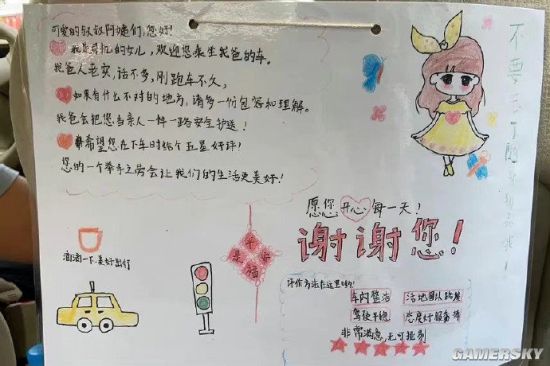 可爱的叔叔阿姨们，您好！
我是司机的女儿，欢迎您来坐我爸的车。
我爸人老实，话不多，刚跑车不久，
如果有什么不对的地方，请多一份包容和理解。
我爸会把您当亲人一样一路安全护送！
希望您在下车时给个五星好评！
您的一个举手之劳会让我们的生活更美好！
愿您开心每一天！
谢谢您！
滴滴一下，美好出行
评价方法在这里哟！
车内整洁 活地图认路准
驾驶平稳 态度好服务棒
非常满意，无可挑剔
不要忘了
GAMERSKY